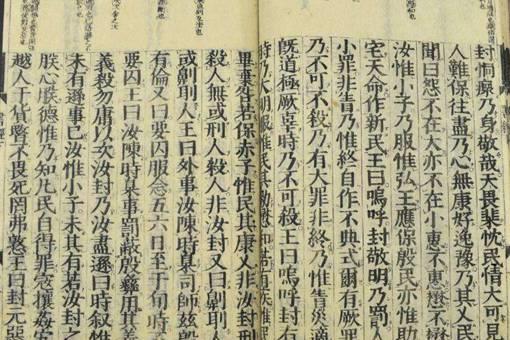 封恫瘝乃身敬哉天畏棐忱民情大可見
人難保往盡乃心無康好逸豫乃其乂民
聞曰怨不在大亦不在小惠不惠懋不懋
汝惟小子乃服惟弘王應保殷民亦惟助
宅天命作新民王曰嗚呼封敬明乃罰人
小罪非眚乃惟終自作不典式爾有厥罪
乃不可不殺乃有大罪非終乃惟眚災適
既道極厥辜時乃不可殺王曰嗚呼封有
時乃大明服惟民其勑懋和若有疾惟民
畢棄咎若保赤子惟民其康乂非汝封刑
殺人無或刑人殺人非汝封又曰劓刵人
或劓刵人王曰外事汝陳時臬司師茲殷
有倫又曰要囚服念五六日至于旬時
要囚王曰汝陳時臬事罰蔽殷彝用其義
義殺勿庸以次汝封乃汝盡遜曰時敘惟
未有遜事已汝惟小子未其有若汝封之
朕心朕德惟乃知凡民自得罪寇攘姦宄
越人于貨暋不畏死罔弗憝王曰封元惡